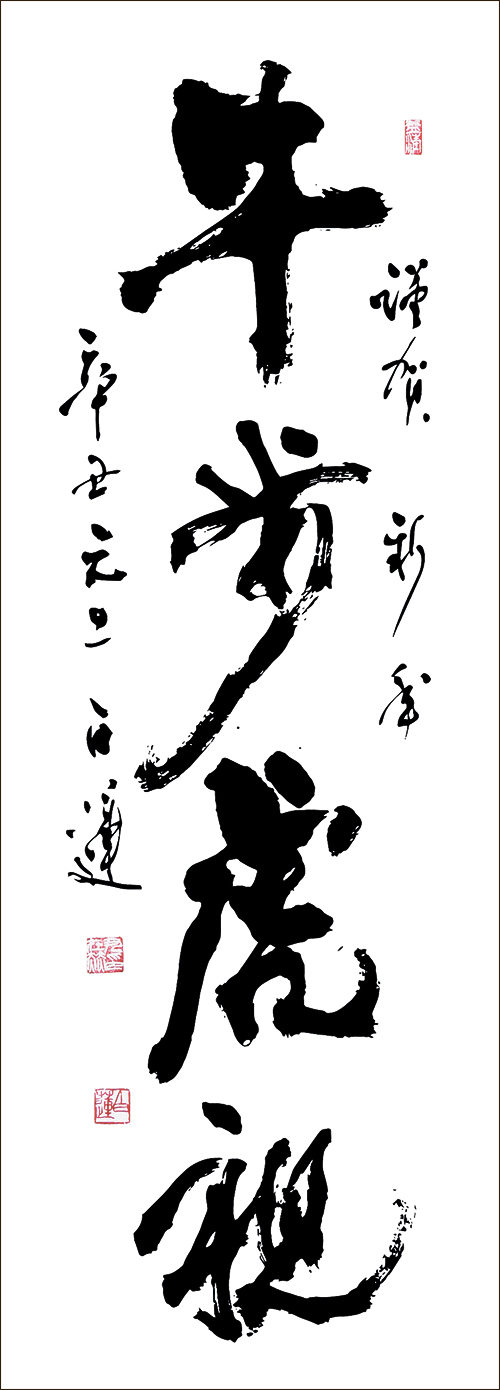 謹賀 新年
牛步虎視
辛丑元旦 白蓮